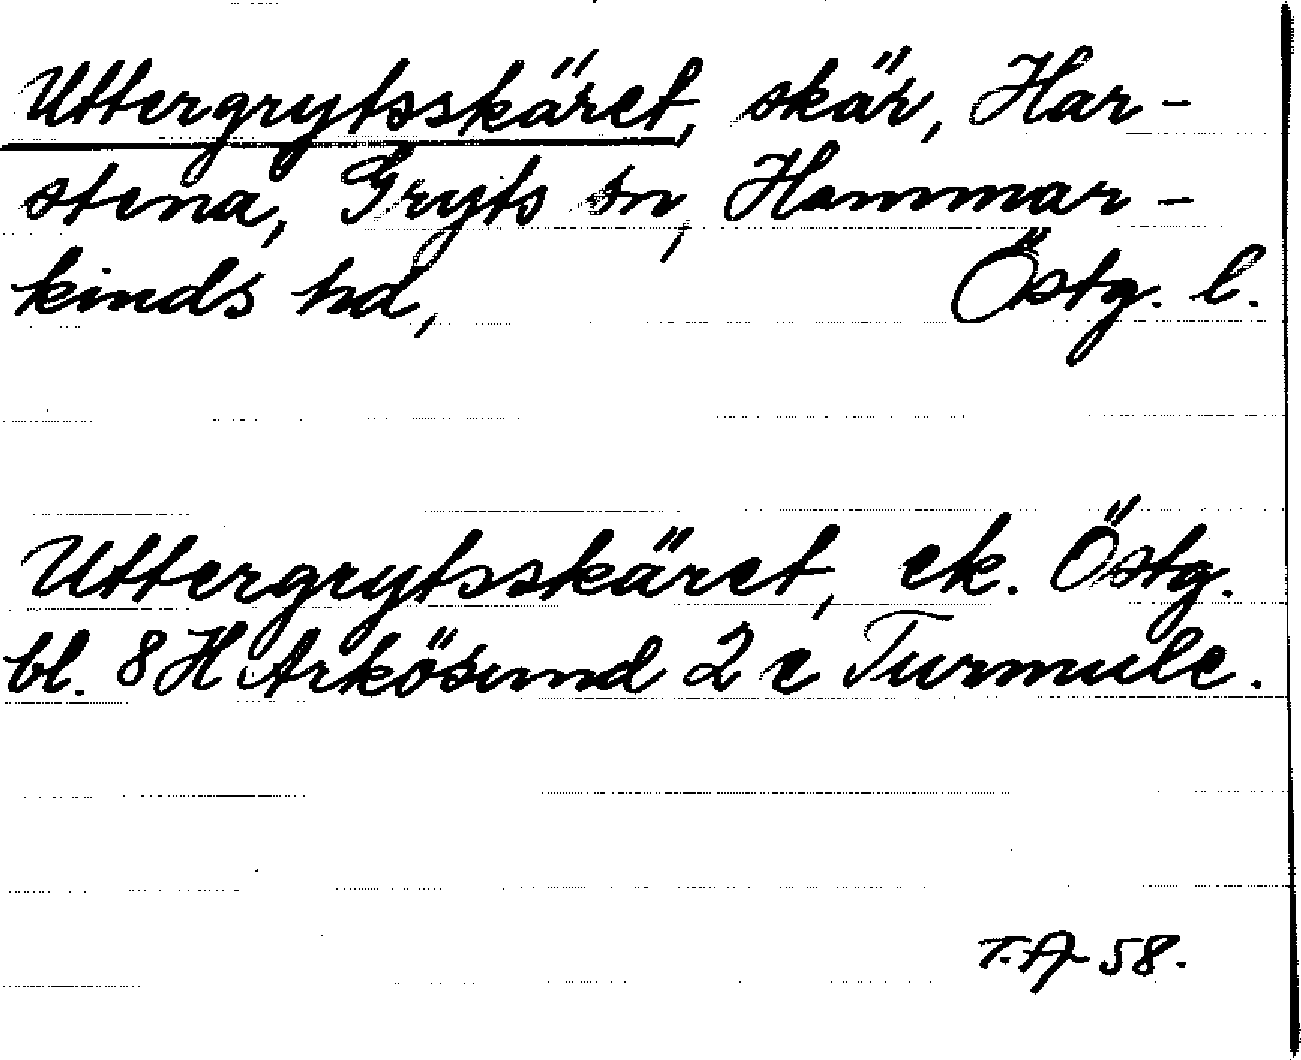 Uttergrytsskäret, skär, Har-
stena, Gryts sn, Hammar-
kinds hd, Östg. l.
Uttergrytsskäret, ek. Östg.
bl. 8 H Arkösund 2 c Turmule.
T.A 58.